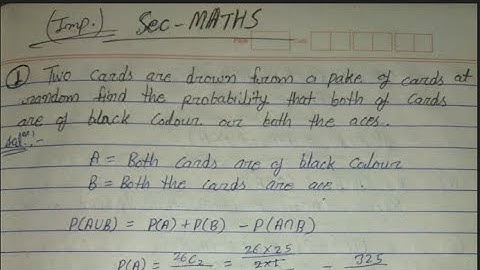 (Imp.) Sec-MATHS
① Two cards are drown from a pake of cards at
random find the probability that both of cards
are of black colour or both the aces.
Sol(n):-
A = Both cards are of black colour
B = Both the cards are ace.
P(AUB) = P(A) + P(B) - P(A∩B)
P(A) = 26C2 = 26×25 = 325
2×1